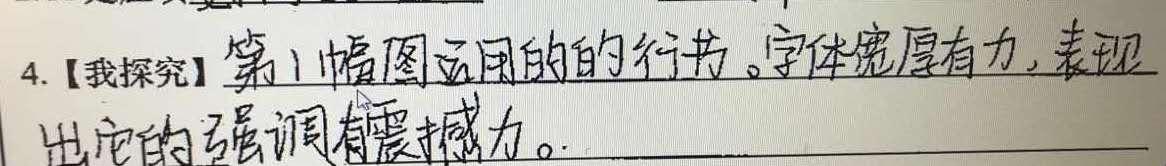 4.【我探究】第1幅图运用的的行书。字体宽厚有力，表现
出它的强调有震撼力。